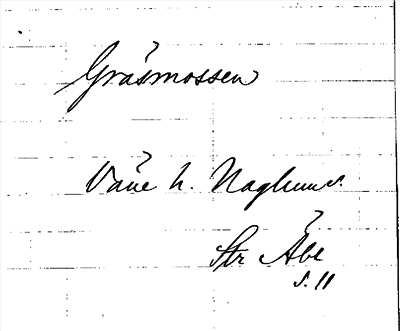 Gräsmossen
Väne h. Naglum s.
Str Åbe
s. 11